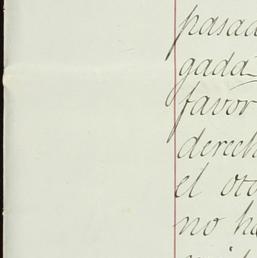 pasad
gada
favor
derech
el oto
no ha